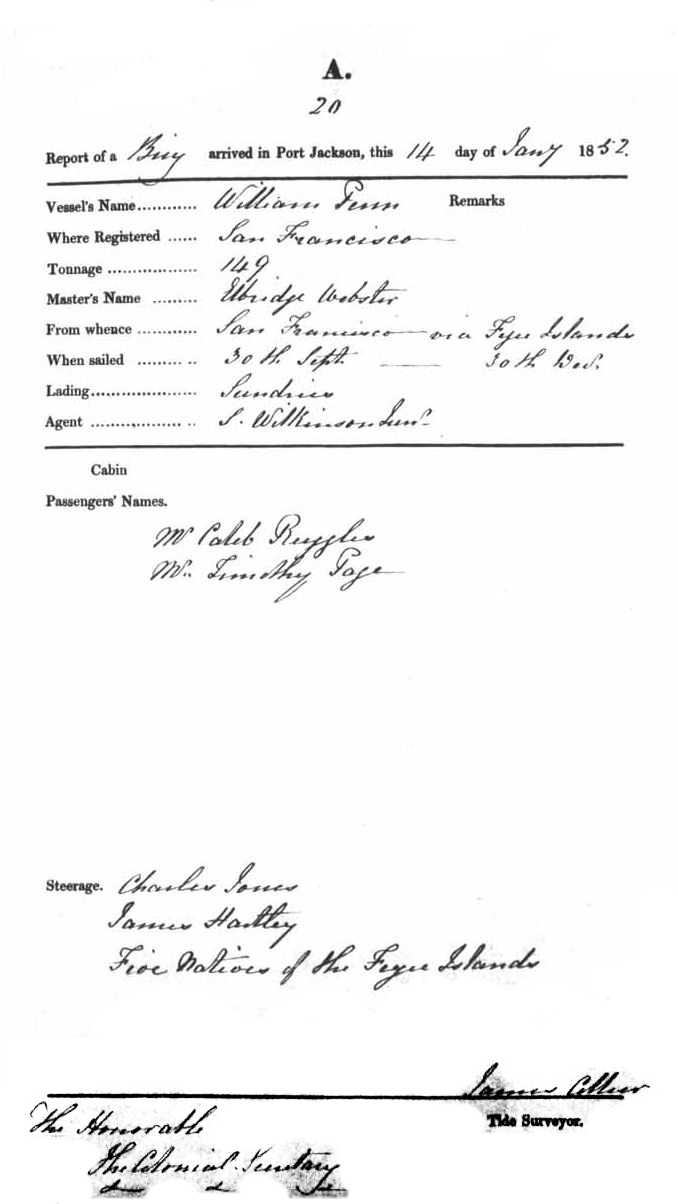 A.
20
Report of a Brig arrived in Port Jackson, this 14 day of Jany 1852.
Vessel's Name............ William Penn Remarks
Where Registered ...... San Francisco
Tonnage .................. 149
Master's Name ......... Elbridge Webster
From whence ............ San Francisco via Feejee Islands
When sailed ......... .. 30th Sept. — 30th Dec.
Lading..................... Sundries
Agent .................. .. S. Wilkinson Junr
Cabin
Passengers' Names.
Mr Caleb Ruggles
Mr. Timothy Page
Steerage. Charles Jones
James Hartley
Five Natives of the Feejee Islands
James
Tide Surveyor.
The Honorable
The Colonial Secretary